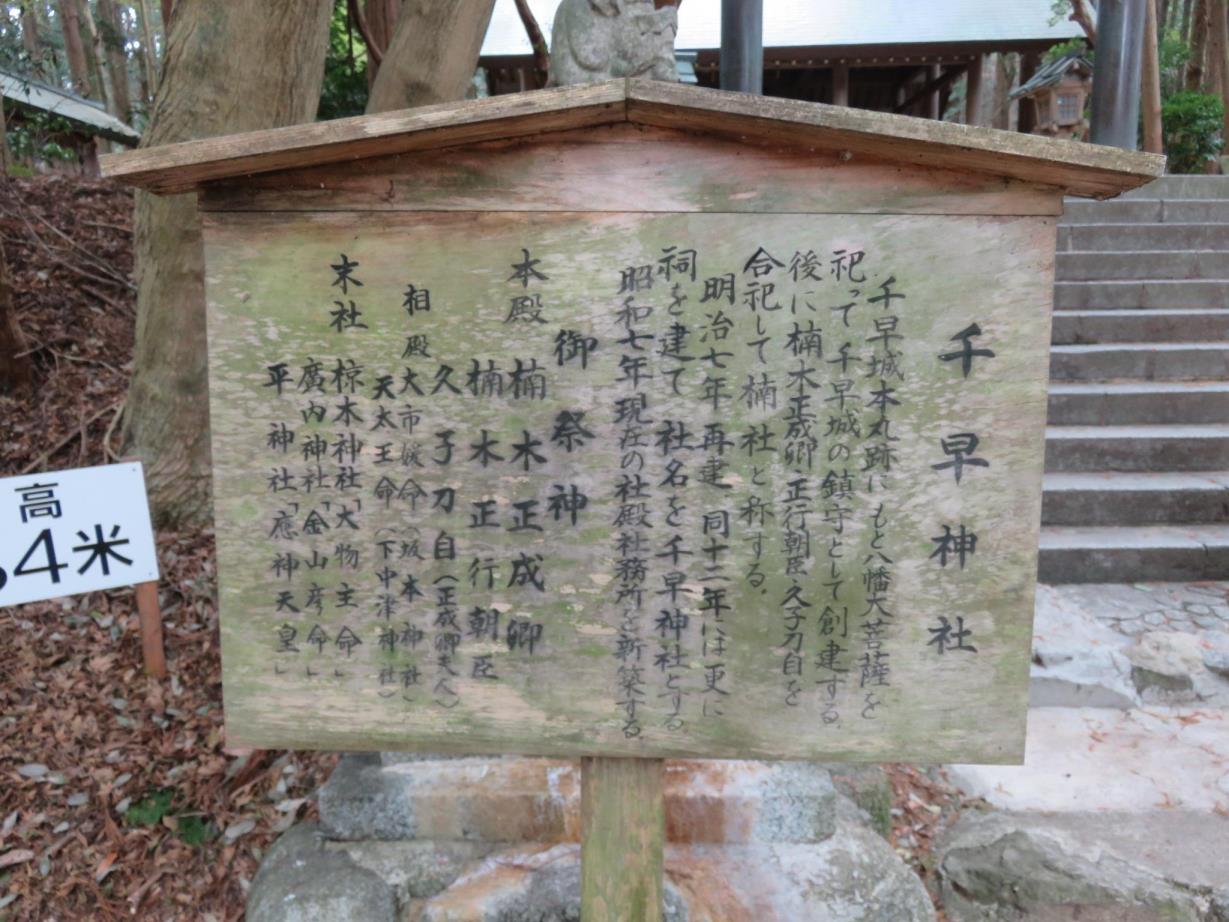 千早神社
千早城本丸跡にもと八幡大菩薩を
祀って千早城の鎮守として創建する.
後に楠木正成卿・正行朝臣・久子刀自を
合祀して楠社と称する.
明治七年再建、同十二年には更に
祠を建て社名を千早神社とする
昭和七年現在の社殿社務所を新築する
御祭神
本殿 楠木正成卿
楠木正行朝臣
久子刀自(正成卿夫人)
相殿 大市媛命(坂本神社)
天太王命(下中津神社)
末社 椋木神社「大物主命」
廣内神社「金山彦命」
平神社「應神天皇」
高
4米